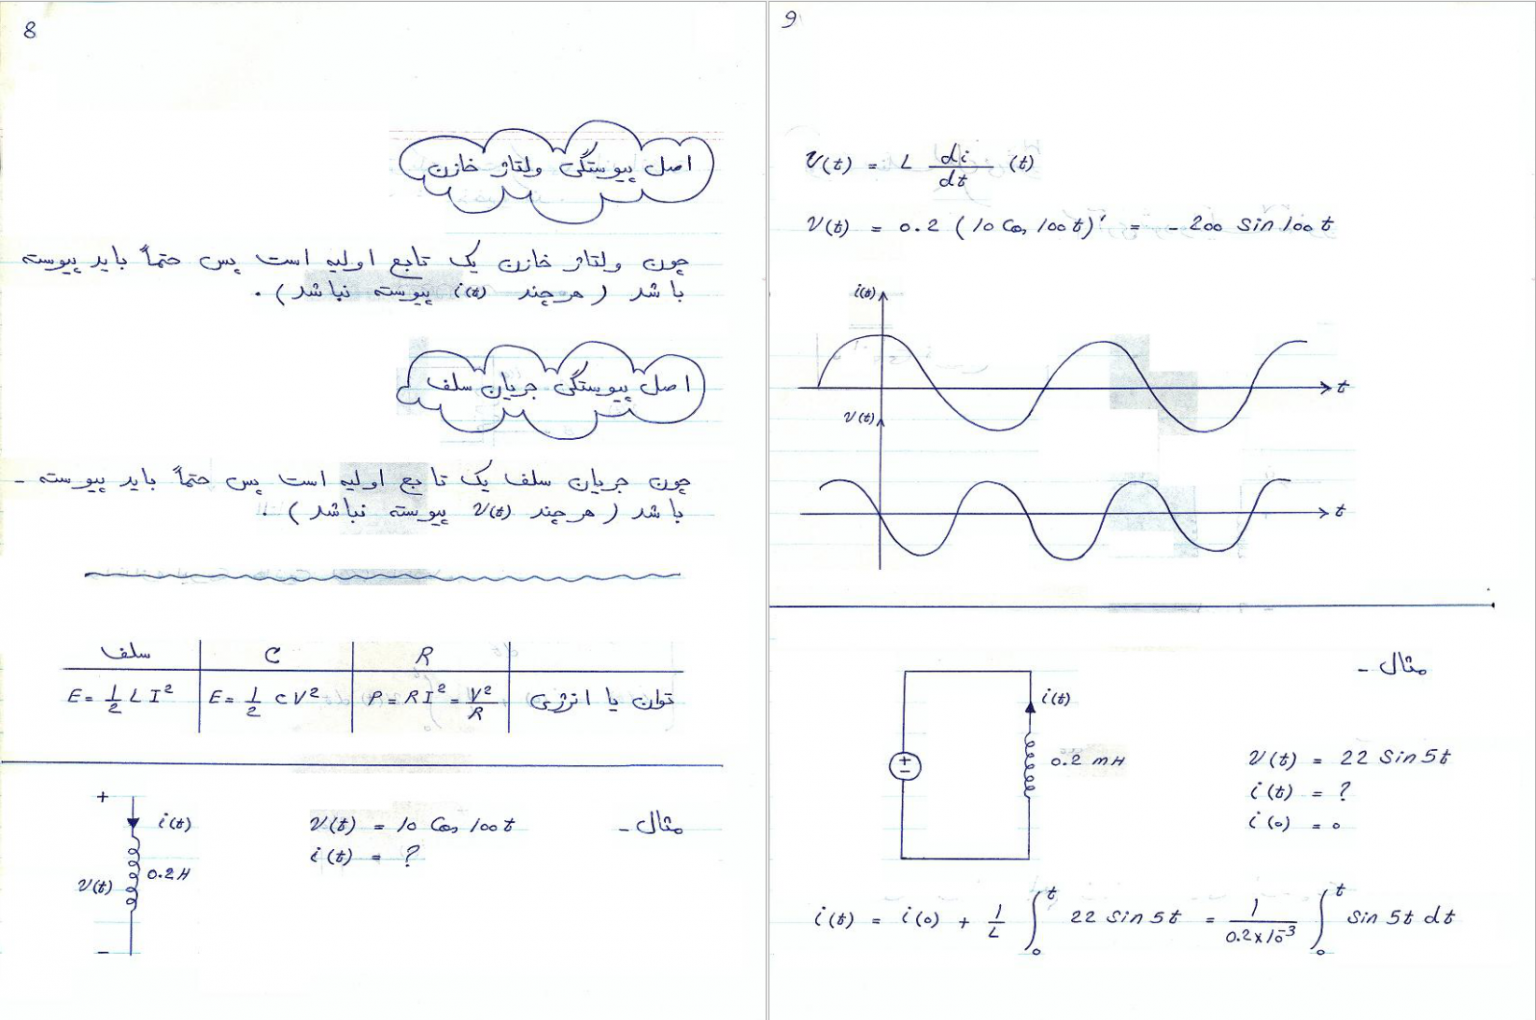 8
اصل پیوستگی ولتاژ خازن
چون ولتاژ خازن یک تابع اولیه است پس حتماً باید پیوسته
باشد (هرچند i(t) پیوسته نباشد).
اصل پیوستگی جریان سلف
چون جریان سلف یک تابع اولیه است پس حتماً باید پیوسته -
باشد (هرچند v(t) پیوسته نباشد).
سلف C R
E = 1/2 L I² E = 1/2 C V² P = R I² = V²/R توان یا انرژی
مثال -
v(t) = 10 Cos 100t
i(t) = ?
+
i(t)
v(t) 0.2 H
-
9
v(t) = L di/dt (t)
v(t) = 0.2 (10 Cos 100t)′ = - 200 Sin 100t
i(t)
t
v(t)
t
مثال -
i(t)
+
-
0.2 mH
v(t) = 22 Sin 5t
i(t) = ?
i(0) = 0
i(t) = i(0) + 1/L ∫₀ᵗ 22 Sin 5t = 1/(0.2×10⁻³) ∫₀ᵗ Sin 5t dt